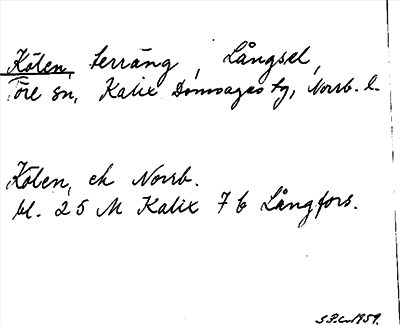 Kölen, terräng, Långsel,
Töre sn, Kalix Domsagas tg, Norrb. l.
Kölen, ek Norrb.
bl. 25 M Kalix 7 b Långfors.
1959.